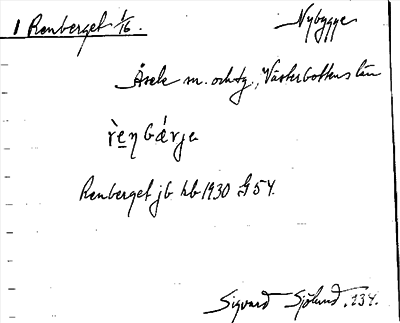 1 Renberget 1/16. Nybygge
Åsele sn. och tg., Västerbottens län
rèŋbǽrje
Renberget jb kb 1930 G 54.
Sigvard Sjölund. 134.